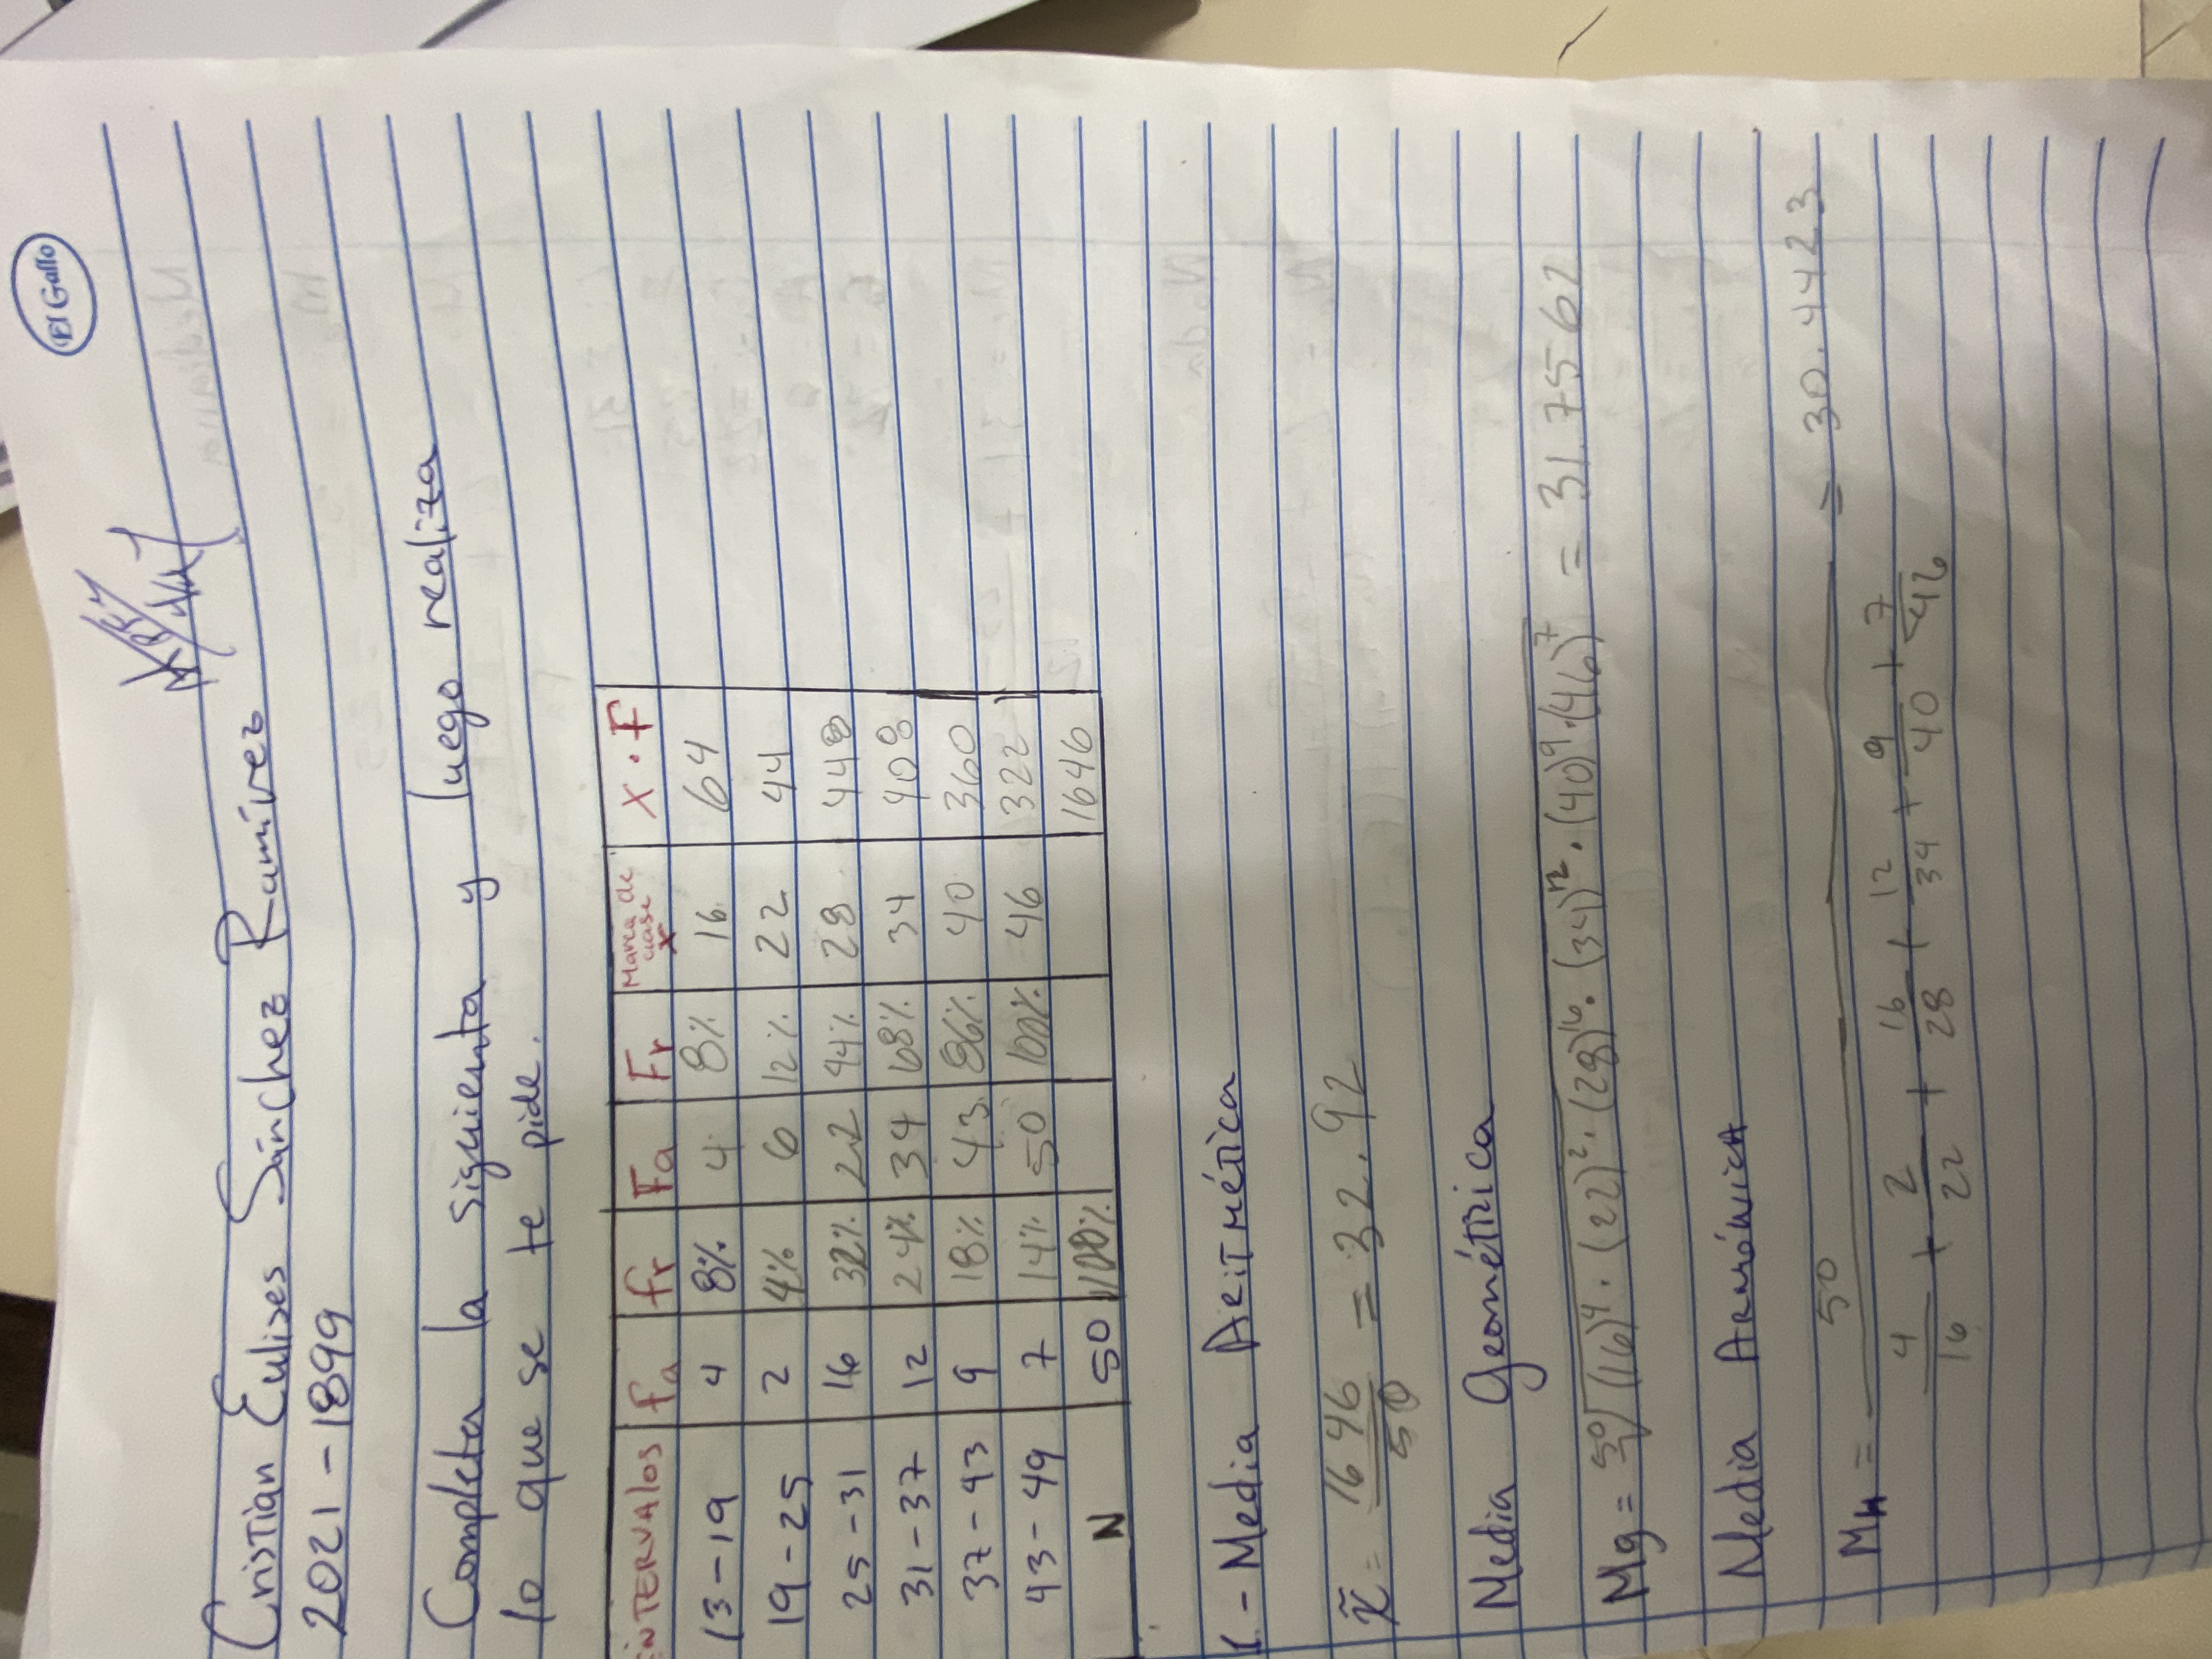 El Gallo
Cristian Eulises Sánchez Ramírez
2021-1899
Completa la siguienta y luego realiza
lo que se te pide.
INTERVAlos fa fr Fa Fr Marca de clase x X · F
13-19 4 8% 4 8% 16 64
19-25 2 4% 6 12% 22 44
25-31 16 32% 22 44% 28 448
31-37 12 24% 34 68% 34 408
37-43 9 18% 43 86% 40 360
43-49 7 14% 50 100% 46 322
N 50 100% 1646
1.- Media Aritmética
x̃ = 1646/50 = 32.92
Media Geométrica
Mg = ⁵⁰√(16)⁴·(22)²·(28)¹⁶·(34)¹²·(40)⁹·(46)⁷ = 31.7562
Media Armónica
MH = 50 / (4/16 + 2/22 + 16/28 + 12/34 + 9/40 + 7/46) = 30.4423